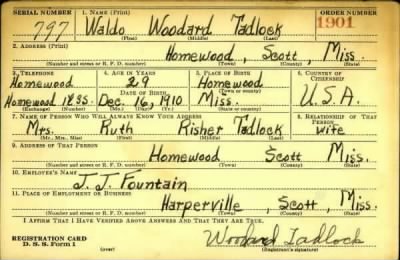 SERIAL NUMBER 1. NAME (Print) ORDER NUMBER
797 Waldo Woodard Tadlock 1901
(First) (Middle) (Last)
2. ADDRESS (Print)
Homewood, Scott, Miss.
(Number and street or R. F. D. number) (Town) (County) (State)
3. TELEPHONE 4. AGE IN YEARS 5. PLACE OF BIRTH 6. COUNTRY OF CITIZENSHIP
Homewood 29 Homewood
DATE OF BIRTH (Town or county)
Homewood Dec. 16, 1910 Miss. U.S.A.
(Exchange) (Number) (Mo.) (Day) (Yr.) (State or country)
7. NAME OF PERSON WHO WILL ALWAYS KNOW YOUR ADDRESS 8. RELATIONSHIP OF THAT PERSON
Mrs. Ruth Risher Tadlock wife
(Mr., Mrs., Miss) (First) (Middle) (Last)
9. ADDRESS OF THAT PERSON
Homewood Scott Miss.
(Number and street or R. F. D. number) (Town) (County) (State)
10. EMPLOYER'S NAME
J.J. Fountain
11. PLACE OF EMPLOYMENT OR BUSINESS
Harperville, Scott, Miss.
(Number and street or R. F. D. number) (Town) (County) (State)
I AFFIRM THAT I HAVE VERIFIED ABOVE ANSWERS AND THAT THEY ARE TRUE.
REGISTRATION CARD Woodard Tadlock
D. S. S. Form 1 (over) (Registrant's signature)